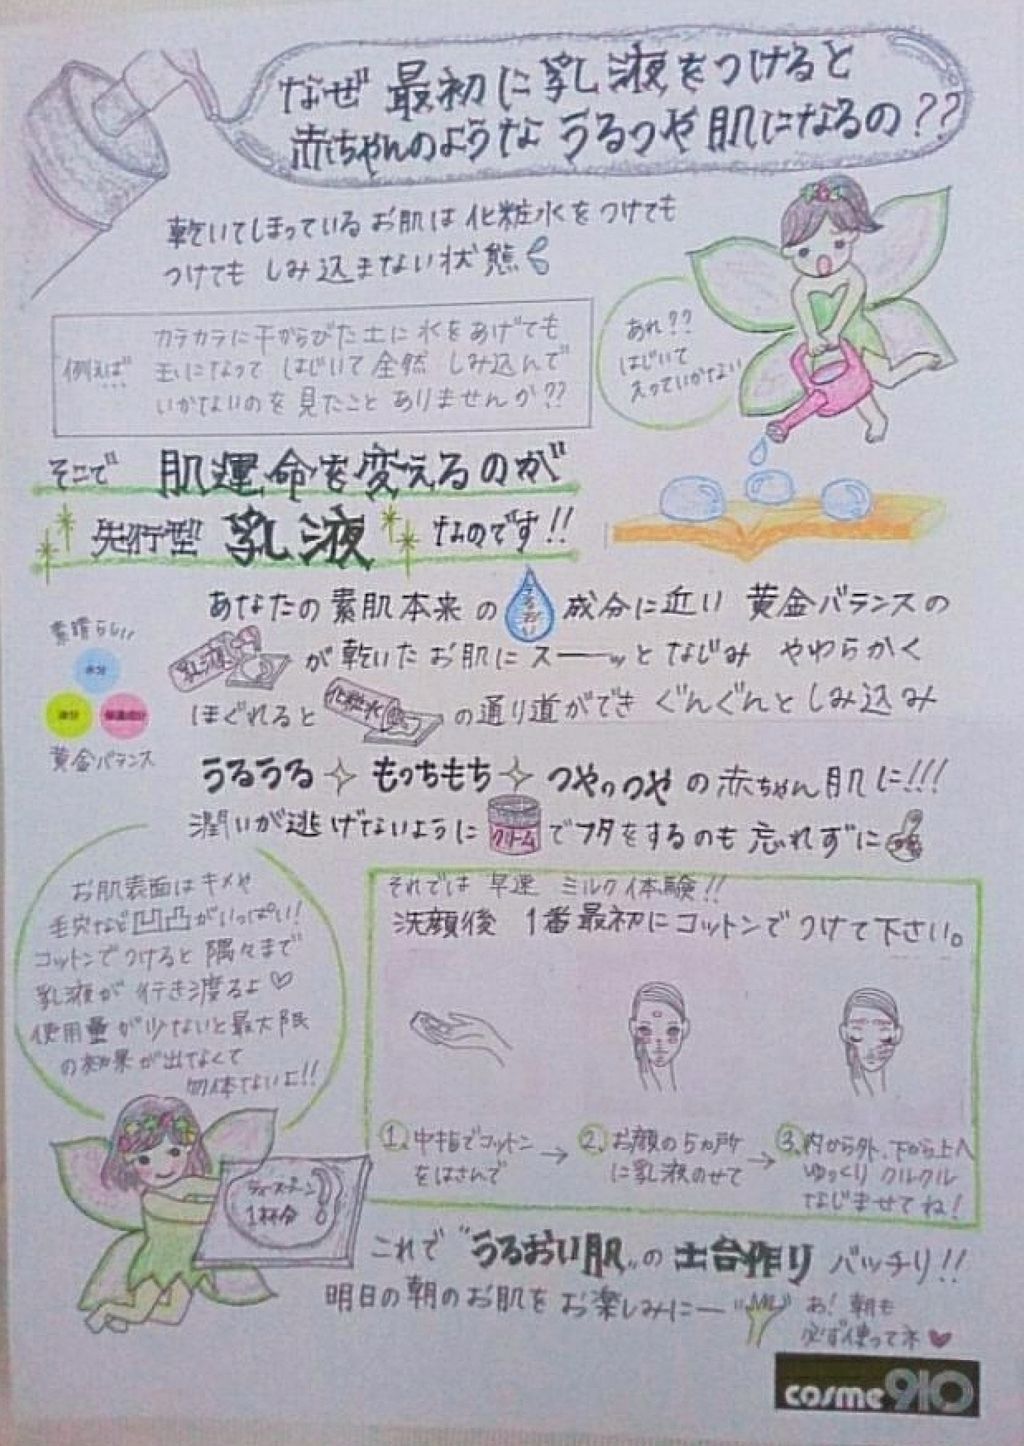 なぜ 最初に乳液をつけると
赤ちゃんのような うるつや肌になるの??
乾いてしまっているお肌は化粧水をつけても
つけても しみ込まない状態
例えば…
カラカラに干からびた土に水をあげても
玉になって はじいて全然 しみ込んで
いかないのを見たことありませんか??
あれ??
はじいて
入っていかない
そこで 肌運命を変えるのが
先行型 乳液 なのです!!
あなたの素肌本来の うるおい 成分に近い 黄金バランスの
乳液 が乾いたお肌にスーーッとなじみ やわらかく
ほぐれると 化粧水 の通り道ができ ぐんぐんとしみ込み
素晴らしい
水分
油分 保湿成分
黄金バランス
うるうる もっちもち つやっつや の赤ちゃん肌に!!!
潤いが逃げないように クリーム でフタをするのも忘れずに
お肌表面はキメや
毛穴など凹凸がいっぱい!
コットンでつけると隅々まで
乳液が行き渡るよ♡
使用量が少ないと最大限
の効果が出なくて
勿体ないよ!!
ティースプーン
1杯分
それでは 早速 ミルク体験!!
洗顔後 1番最初にコットンでつけて下さい。
1. 中指でコットン
をはさんで
→
2. お顔の5ヵ所
に乳液のせて
→
3. 内から外、下から上へ
ゆっくり クルクル
なじませてね!
これで "うるおい肌"の土台作り バッチリ!!
明日の朝のお肌をお楽しみにー
あ! 朝も
必ず使ってネ♥
cosme910